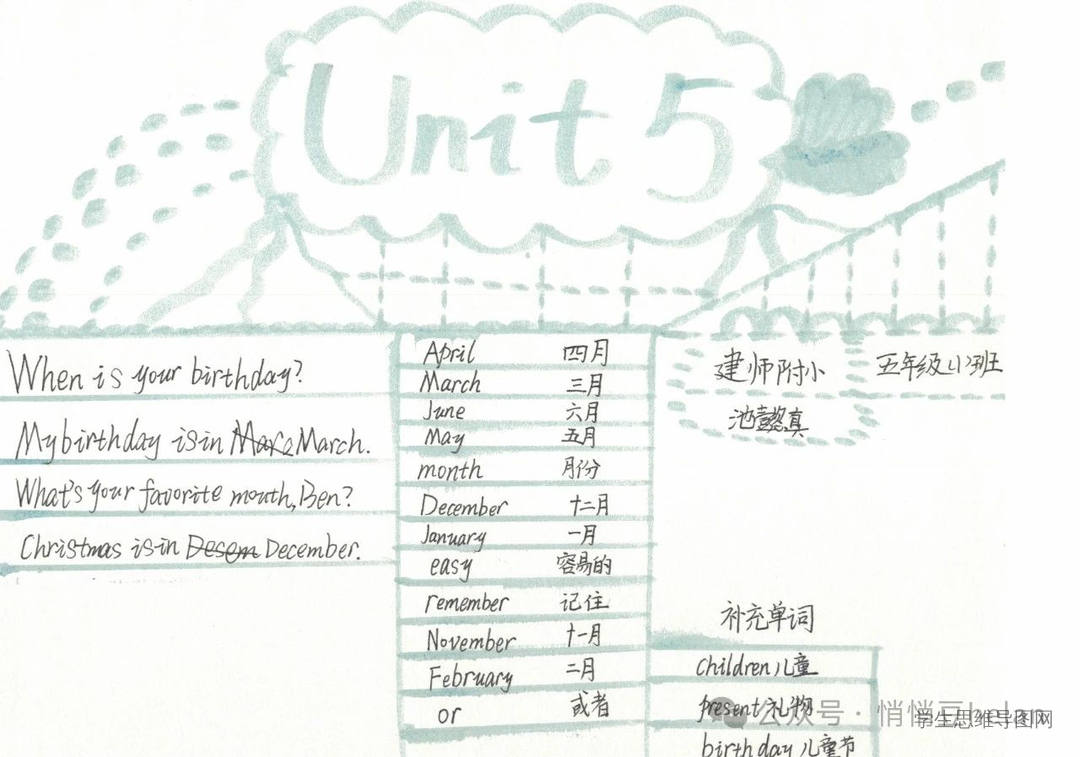 Unit 5
When is your birthday?
My birthday is in March.
What's your favorite mouth, Ben?
Christmas is in Desem December.
April 四月
March 三月
June 六月
May 五月
month 月份
December 十二月
January 一月
easy 容易的
remember 记住
November 十一月
February 二月
or 或者
建师附小 五年级(12)班
池懿真
补充单词
children 儿童
present 礼物
birthday 儿童节
公众号·悄悄豆
学生思维导图网